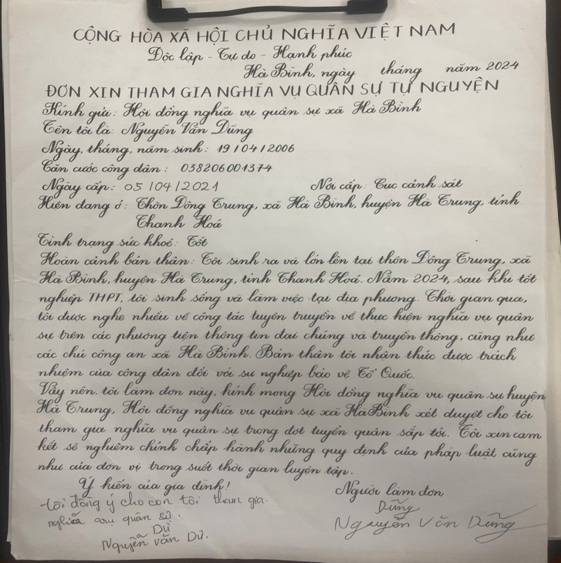 CỘNG HÒA XÃ HỘI CHỦ NGHĨA VIỆT NAM
Độc lập - Tự do - Hạnh phúc
Hà Bình, ngày tháng năm 2024
ĐƠN XIN THAM GIA NGHĨA VỤ QUÂN SỰ TỰ NGUYỆN
Kính gửi: Hội đồng nghĩa vụ quân sự xã Hà Bình
Tên tôi là: Nguyễn Văn Dũng
Ngày, tháng, năm sinh: 19/04/2006
Căn cước công dân: 038206001374
Ngày cấp: 05/04/2021 Nơi cấp: Cục cảnh sát
Hiện đang ở: Thôn Đông Trung, xã Hà Bình, huyện Hà Trung, tỉnh
Thanh Hoá
Tình trạng sức khoẻ: Tốt
Hoàn cảnh bản thân: Tôi sinh ra và lớn lên tại thôn Đông Trung, xã
Hà Bình, huyện Hà Trung, tỉnh Thanh Hoá. Năm 2024, sau khi tốt
nghiệp THPT, tôi sinh sống và làm việc tại địa phương. Thời gian qua,
tôi được nghe nhiều về công tác tuyên truyền về thực hiện nghĩa vụ quân
sự trên các phương tiện thông tin đại chúng và truyền thông, cũng như
các chú công an xã Hà Bình. Bản thân tôi nhận thức được trách
nhiệm của công dân đối với sự nghiệp bảo vệ Tổ Quốc.
Vậy nên, tôi làm đơn này, kính mong Hội đồng nghĩa vụ quân sự huyện
Hà Trung, Hội đồng nghĩa vụ quân sự xã Hà Bình xét duyệt cho tôi
tham gia nghĩa vụ quân sự trong đợt tuyển quân sắp tới. Tôi xin cam
kết sẽ nghiêm chỉnh chấp hành những quy định của pháp luật cũng
như của đơn vị trong suốt thời gian luyện tập.
Ý kiến của gia đình! Người làm đơn
-tôi đồng ý cho con tôi tham gia Dũng
nghĩa vụ quân sự. Nguyễn Văn Dũng
Dư
Nguyễn Văn Dư.